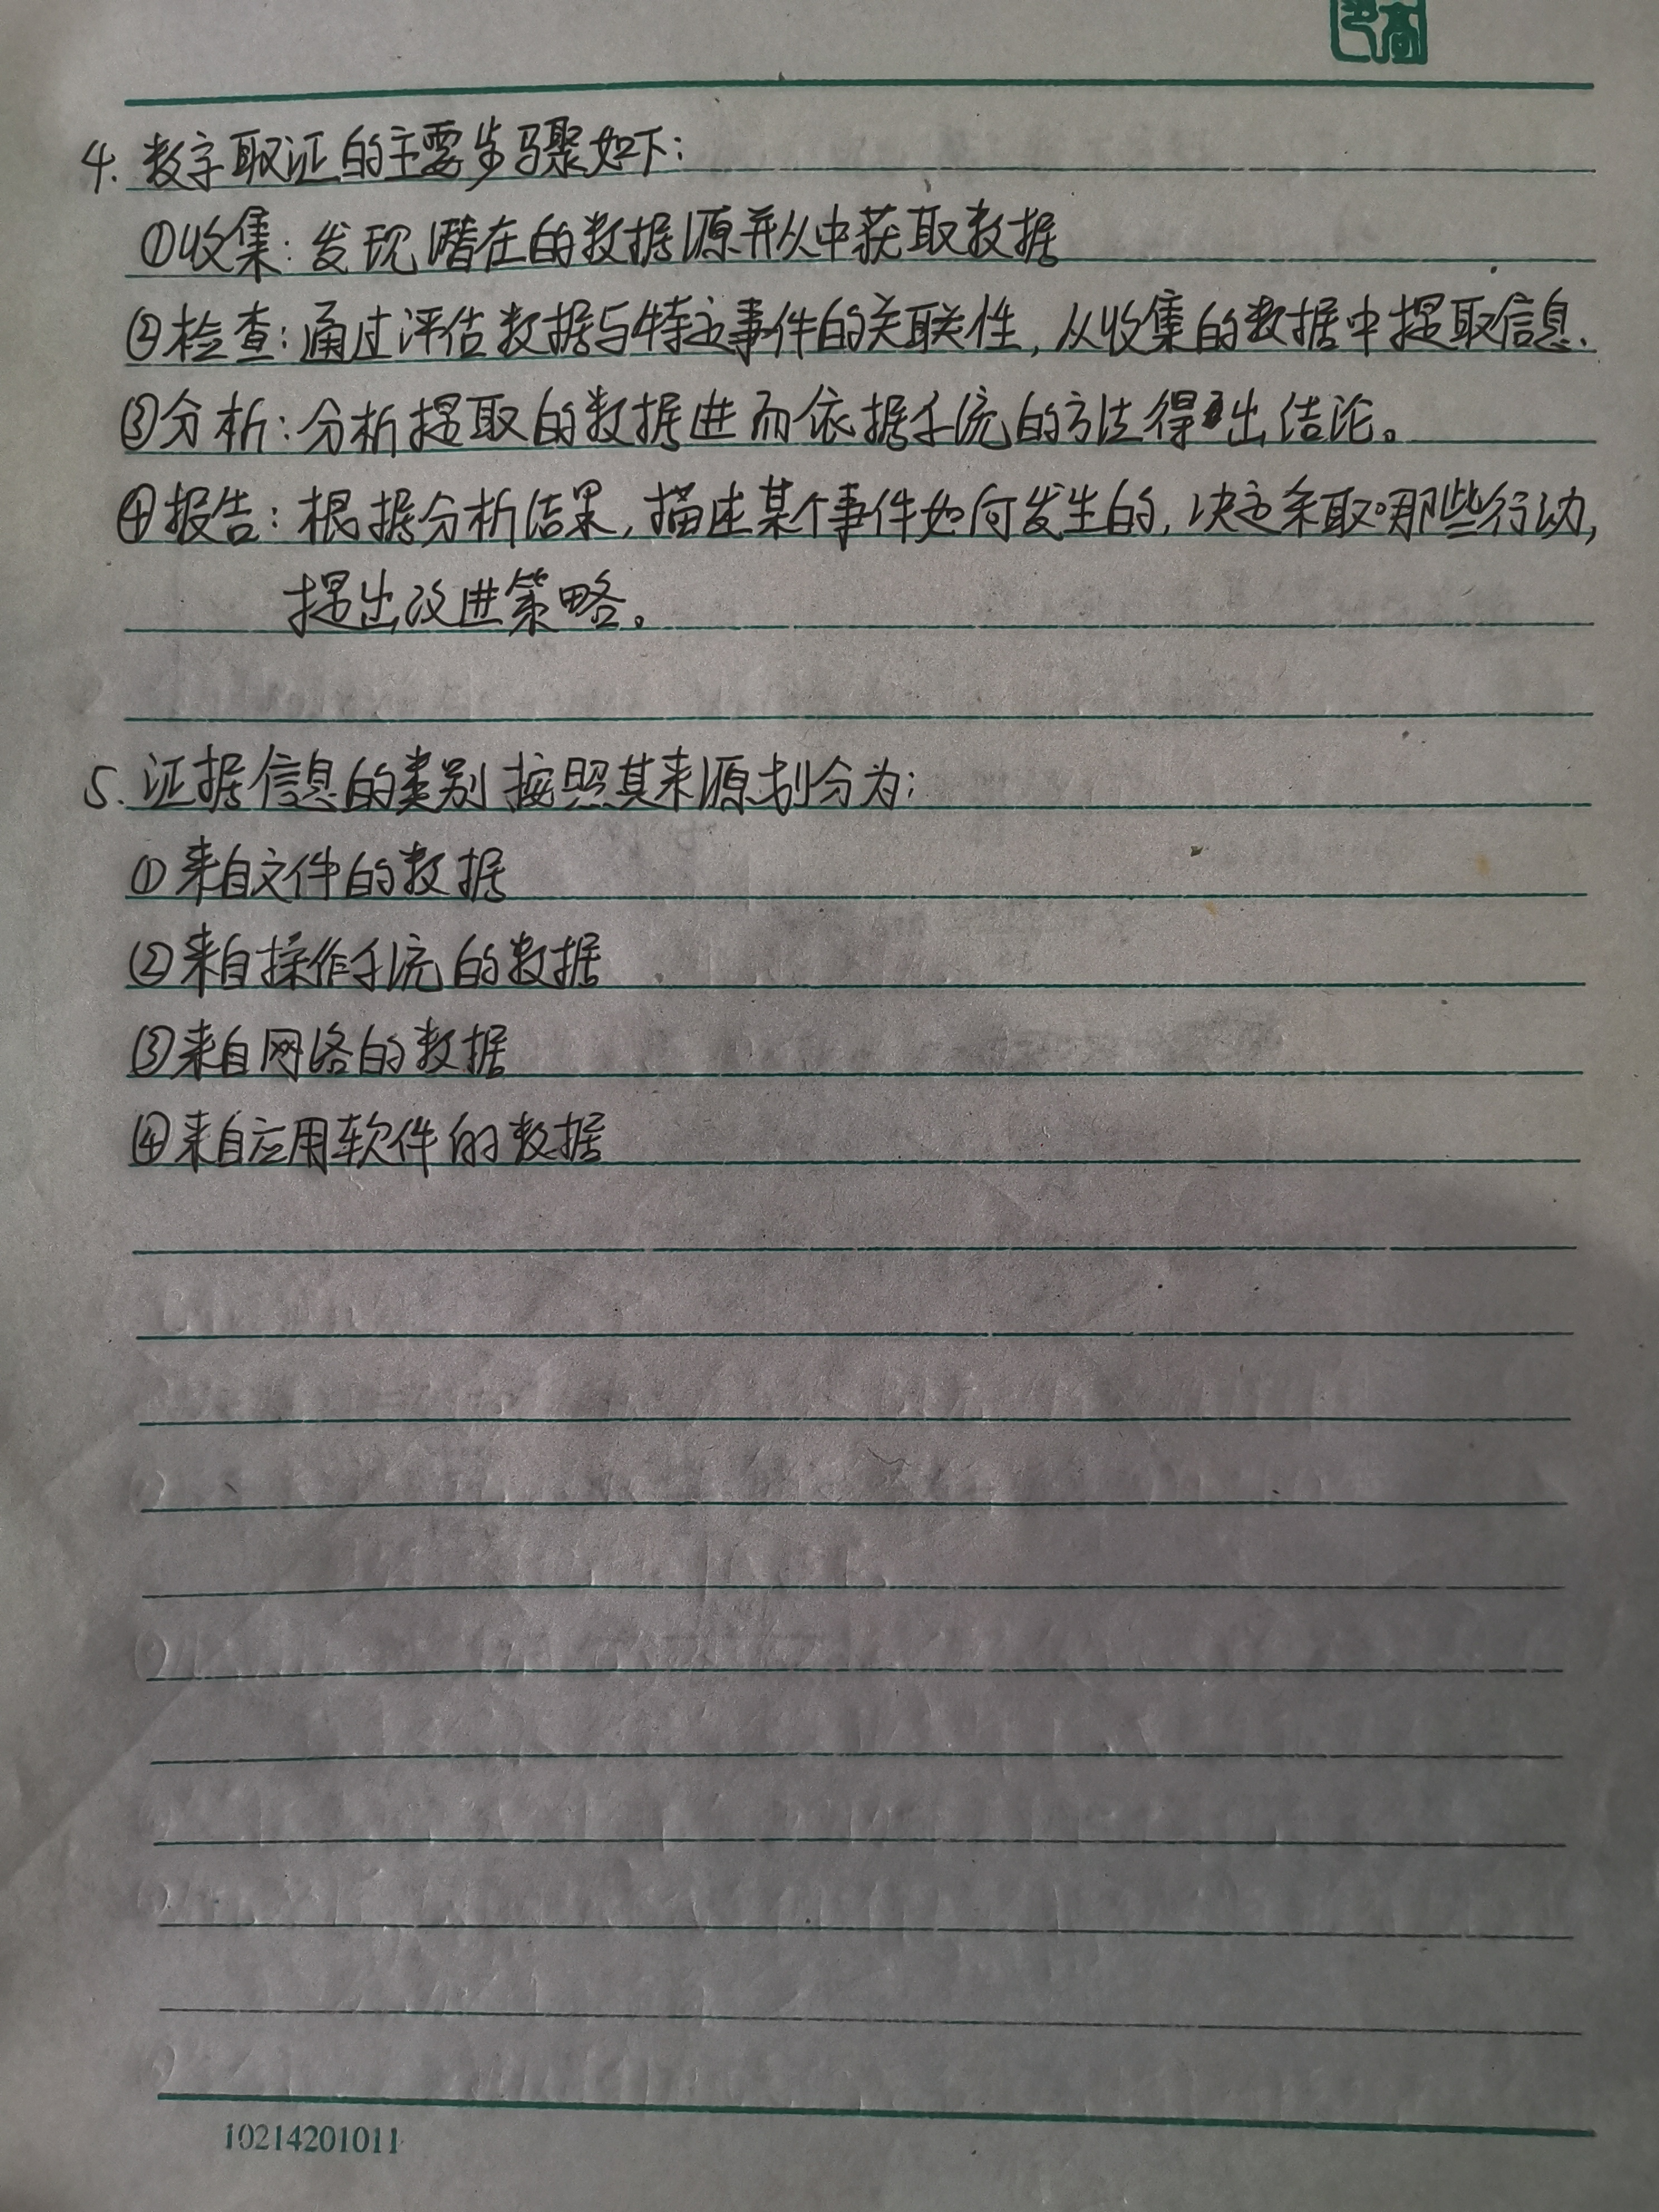 4. 数字取证的主要步骤如下:
①收集: 发现潜在的数据源并从中获取数据
②检查: 通过评估数据与特定事件的关联性, 从收集的数据中提取信息.
③分析: 分析提取的数据进而依据系统的方法得出结论。
④报告: 根据分析结果, 描述某个事件如何发生的, 决定采取哪些行动,
提出改进策略。
5. 证据信息的类别按照其来源划分为:
①来自文件的数据
②来自操作系统的数据
③来自网络的数据
④来自应用软件的数据
10214201011